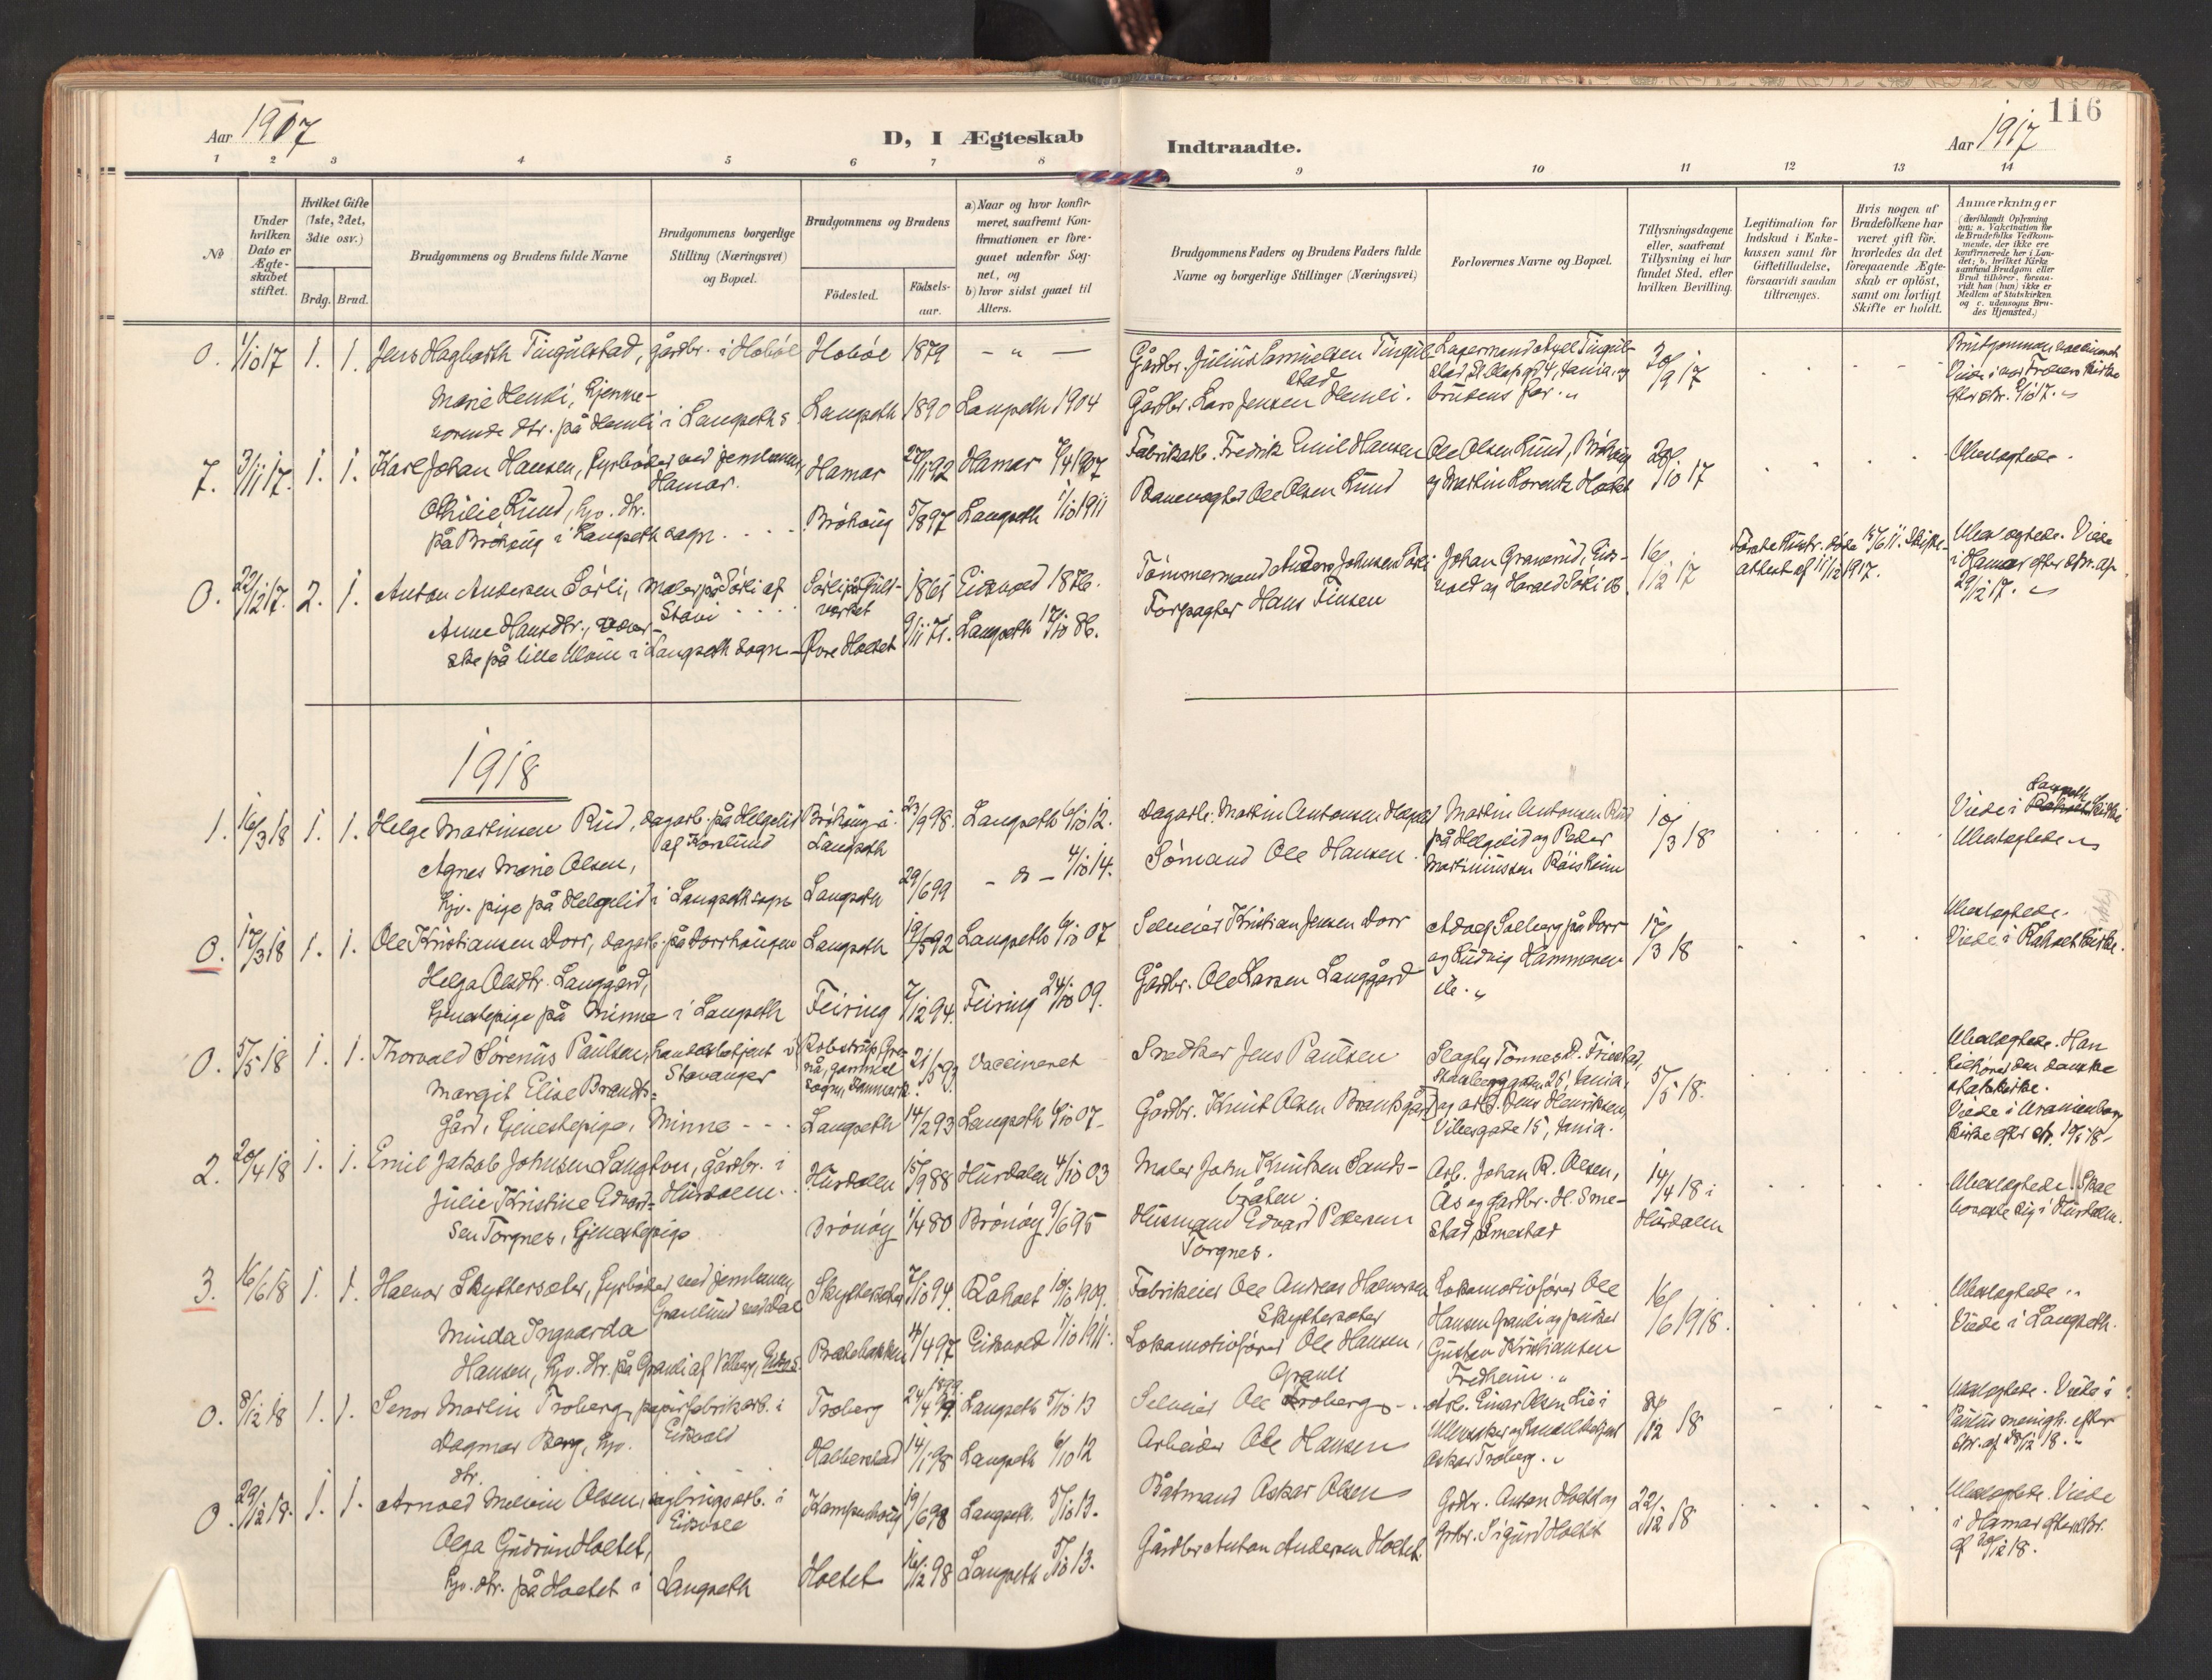 Aar 1917
D, I Ægteskab
Indtraadte.
Aar 1917
116
1 2 3 4 5 6 7 8 9 10 11 12 13 14
No
Under hvilken Dato er Ægteskabet stiftet.
Hvilket Gifte (1ste, 2det, 3die osv.)
Brdg. Brud.
Brudgommens og Brudens fulde Navne
Brudgommens borgerlige Stilling (Næringsvei) og Bopæl.
Brudgommens og Brudens
Födested.
Födsels-aar.
a) Naar og hvor konfir-
meret, saafremt Kon-
firmationen er fore-
gaaet udenfor Sog-
net, og
b) hvor sidst gaaet til
Alters.
Brudgommens Faders og Brudens Faders fulde
Navne og borgerlige Stillinger (Næringsvei)
Forlovernes Navne og Bopæl.
Tillysningsdagene
eller, saafremt
Tillysning ei har
fundet Sted, efter
hvilken Bevilling.
Legitimation for
Indskud i Enke-
kassen samt for
Giftetilladelse,
forsaavidt saadan
tiltrænges.
Hvis nogen af
Brudefolkene har
været gift för,
hvorledes da det
foregaaende Ægte-
skab er oplöst,
samt om lovligt
Skifte er holdt.
Anmærkninger
(deriblandt Oplysning
om: a. Vakcination for
de Brudefolks Vedkom-
mende, der ikke ere
konfirmerede her i Lan-
det; b. hvilket Kirke-
samfund Brudgom eller
Brud tilhörer, forsaa-
vidt han (hun) ikke er
Medlem af Statskirken
og c. udensogns Bru-
des Hjemsted.)
0. 1/10 17 1. 1. Jens Hagbarth Tingulstad, gårdbr. i Hobøl Hobøl 1879 - " - Gårdbr. Julius Samuelsen Tingulstad 30/9 17
Marie Hemli, hjemmeværende dtr. på Hemli i Langseth s. Langseth 1890 Langseth 1904 Gårdbr. Lars Jensen Hemli. brudens far.
7. 3/11 17. 1. 1. Karl Johan Hansen, fyrbøder ved jernbanen, Hamar. Hamar 27/11 92 Hamar 7/4 1907 Fabrikarb. Fredrik Emil Hansen Ole Olsen Lund, Bröhaug 28/10 17 Ubeslægtede.
Othilie Lund, hjv. dtr. på Bröhaug i Langseth sogn. Bröhaug 5/8 97 Langseth 1/10 1911 Banevogter Ole Olsen Lund og Martin Lorentz Holtet
0. 22/12 17. 2. 1. Anton Andersen Sørli, maler på Sørli af Stavi 1865 Eidsvold 1876. Tømmermand Anders Johnsen Sørli Johan Granerud, Eidsvold og Harald Sørli ib. 16/12 17 Ubeslægtede. Viede i Hamar
Anne Hansdtr. på lille Ulvin i Langseth sogn Øvre Holtet 9/11 71. Langseth 17/10 86. Forpagter Hans Finsen
1918
1. 16/3 18 1. 1. Helge Martinsen Rud, dagarb. på Helgelid af Korslund Bröhaug i Langseth 23/9 98. Langseth 6/10 12. Dagarb. Martin Antonsen Martin Antonsen Rud på Helgelid og Peder Martiniussen Räisheim 10/3 18 Viede i Langseth Kirke Ubeslægtede
Agnes Marie Olsen, hjv. pige på Helgelid i Langseth sogn Langseth 29/6 99 4/10 14. Sömand Ole Hansen.
0. 17/3 18 1. 1. Ole Kristiansen Dorr, dagarb. på Dorrhaugen Langseth 19/5 92 Langseth 6/10 07 Selveier Kristian Jensen Dorr Adolf Solberg på Dorr og Ludvig Hammeren ib. 17/3 18 Ubeslægtede. Viede i Råholt Kirke.
Helga Olsdtr. Langgård, tjenestepige på Minne i Langseth Feiring 7/12 94. Feiring 24/10 09. Gårdbr. Ole Larsen Langgård
0. 5/5 18 1. 1. Thorvald Sørenus Paulsen, handelsbetjent i Stavanger Danmark. 21/5 93 Vaccineret Snedker Jens Paulsen 5/5 18. Ubeslægtede. Han tilhører den danske statskirke. Viede i Uranienborg kirke
Margit Elise Brandsgård, tjenestepige, Minne - - - Langseth 14/2 93 Langseth 6/10 07 - Gårdbr. Knut Olsen Brandsgård og arb. Jens Henriksen, Vibesgate 15, Kania.
2. 20/4 18 1. 1. Emil Jakob Johnsen Langton, gårdbr. i Hurdalen. Hurdalen 15/9 88 Hurdalen 4/10 03 Maler John Knutsen Sandsbråten. Arb. Johan R. Olsen, Ås og gårdbr. H. Smestad, Smestad 14/4 18 i Hurdalen Ubeslægtede. Skal bosætte sig i Hurdalen.
Julie Kristine Edvardsen Torgnes, tjenestepige Brönöy 1/4 80 Brönöy 9/6 95 Husmand Edvard Pedersen Torgnes.
3. 16/6 18 1. 1. Halvor Skyttersæter, fyrbøder ved jernbanen, Granlund ved Dal Skyttersæter 7/10 94. Råholt 10/10 1909. Fabrikeier Ole Andreas Halvorsen Skyttersæter Lokomotivfører Ole Hansen Granli og pusser Gustav Kristiansen Fredheim. 16/6 1918. Ubeslægtede. Viede i Langseth.
Minda Ingvarda Hansen, hjv. dtr. på Granli Brætebakken 4/4 97 Eidsvold 1/10 1911. Lokomotivfører Ole Hansen, Granli
0. 8/12 18 1. 1. Senor Martin Troberg, papirfabrikarb. i Eidsvold Troberg 24/4 1899. Langseth 5/10 13 Selveier Ole Troberg Arb. Einar Olsen Lie i Ullensaker og handelsbetjent Oskar Troberg. 8/12 18 Ubeslægtede. Viede i Paulus menigh. efter
Dagmar Berg, hjv. dtr. Halberstad 14/1 98 Langseth 6/10 12 Arbeider Ole Hansen
0. 29/12 18. 1. 1. Arnold Melvin Olsen, sagbrugsarb. i Eidsvoll Kampenhaug 19/6 98 Langseth. 5/10 13. Båtmand Oskar Olsen Gdbr. Anton Holtet og Grbr. Sigurd Holtet 22/12 18 Ubeslægtede. Viede i Hamar
Olga Gudrun Holtet, hjv. dtr. på Holtet i Langseth Holtet 16/12 98 Langseth 5/10 13. Gårdbr. Anton Andersen Holtet.